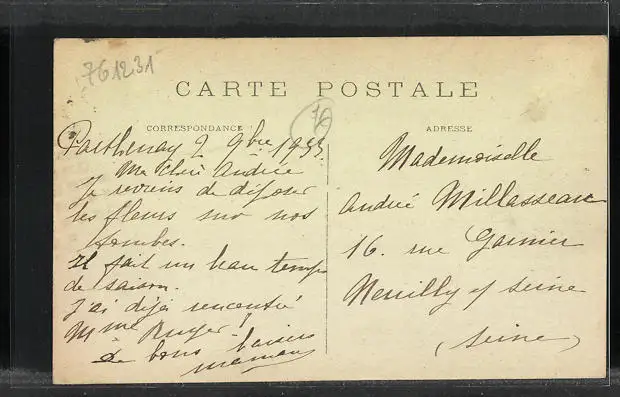 761231
CARTE POSTALE
CORRESPONDANCE
ADRESSE
76
Parthenay 2 9bre 1933
Ma chère Andrée
Je reviens de déposer
les fleurs sur nos
tombes.
Il fait un beau temps
de saison.
J'ai déjà rencontré
Mme !
De bons baisers
maman
Mademoiselle
André Millasseau
16. rue Garnier
Neuilly s/ Seine
(Seine)